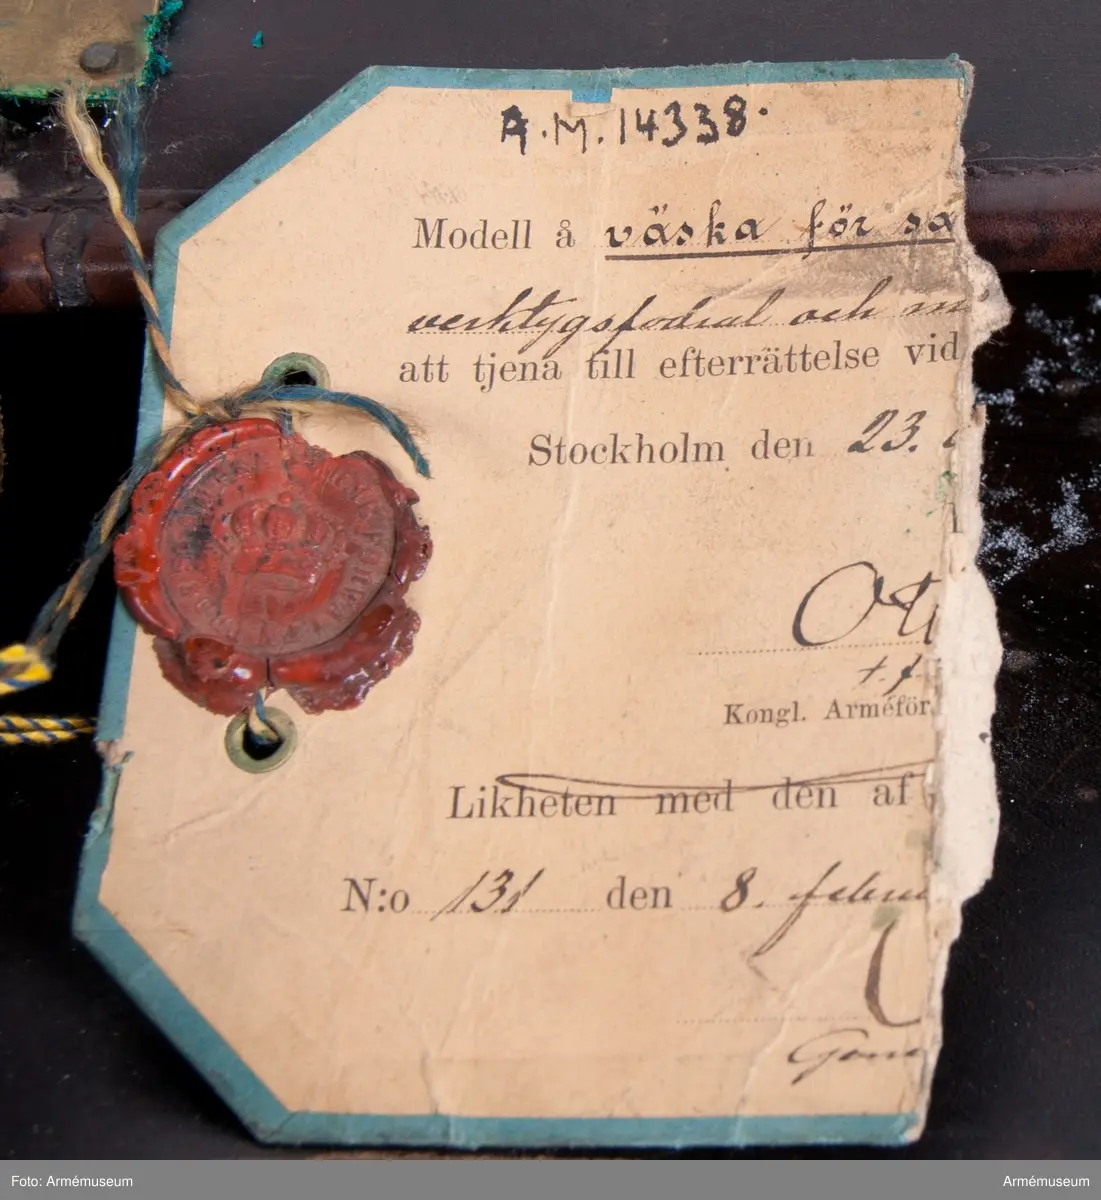 A.M. 14338.
Modell å väska för sa
verktygsfodral och m
att tjena till efterrättelse vid
Stockholm den 23.
Ott
t. f.
Kongl. Arméför
Likheten med den af
N:o 131 den 8. februa
Foto: Armémuseum
Armémuseum